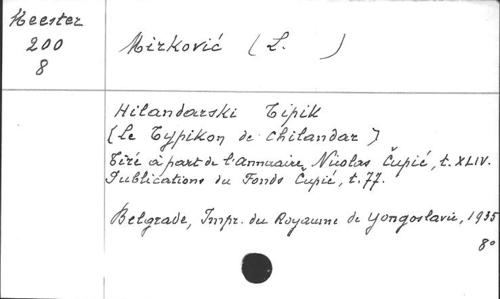 Heester
200
8
Mirković (L. )
Hilandarski Tipik
[Le Typikon de Chilandar]
Tiré à part de l'Annuaire Nicolas Čupić, t. XLIV.
Publications du Fonds Čupić, t. 77.
Belgrade, Impr. du Royaume de Yougoslavie, 1935
8°